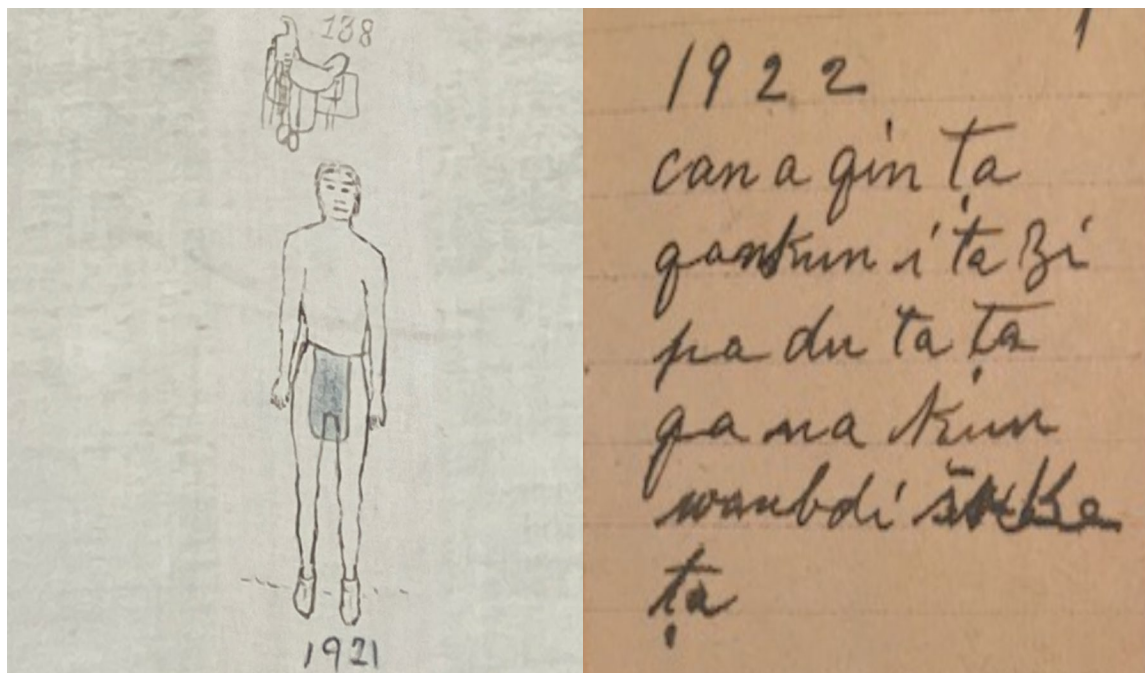 138
1921
1922
can a qin ṭa
qankun i ta Zi
pa du ta ṭa
qa na kun
wanbdi
ṭa